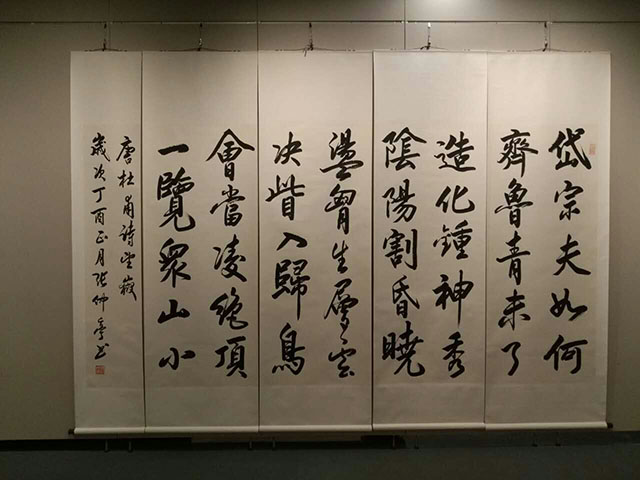 岱宗夫如何
齊魯青未了
造化鍾神秀
陰陽割昏曉
盪胷生層雲
決眥入歸鳥
會當凌絕頂
一覽衆山小
唐杜甫詩望嶽
歲次丁酉正月張仲亭書